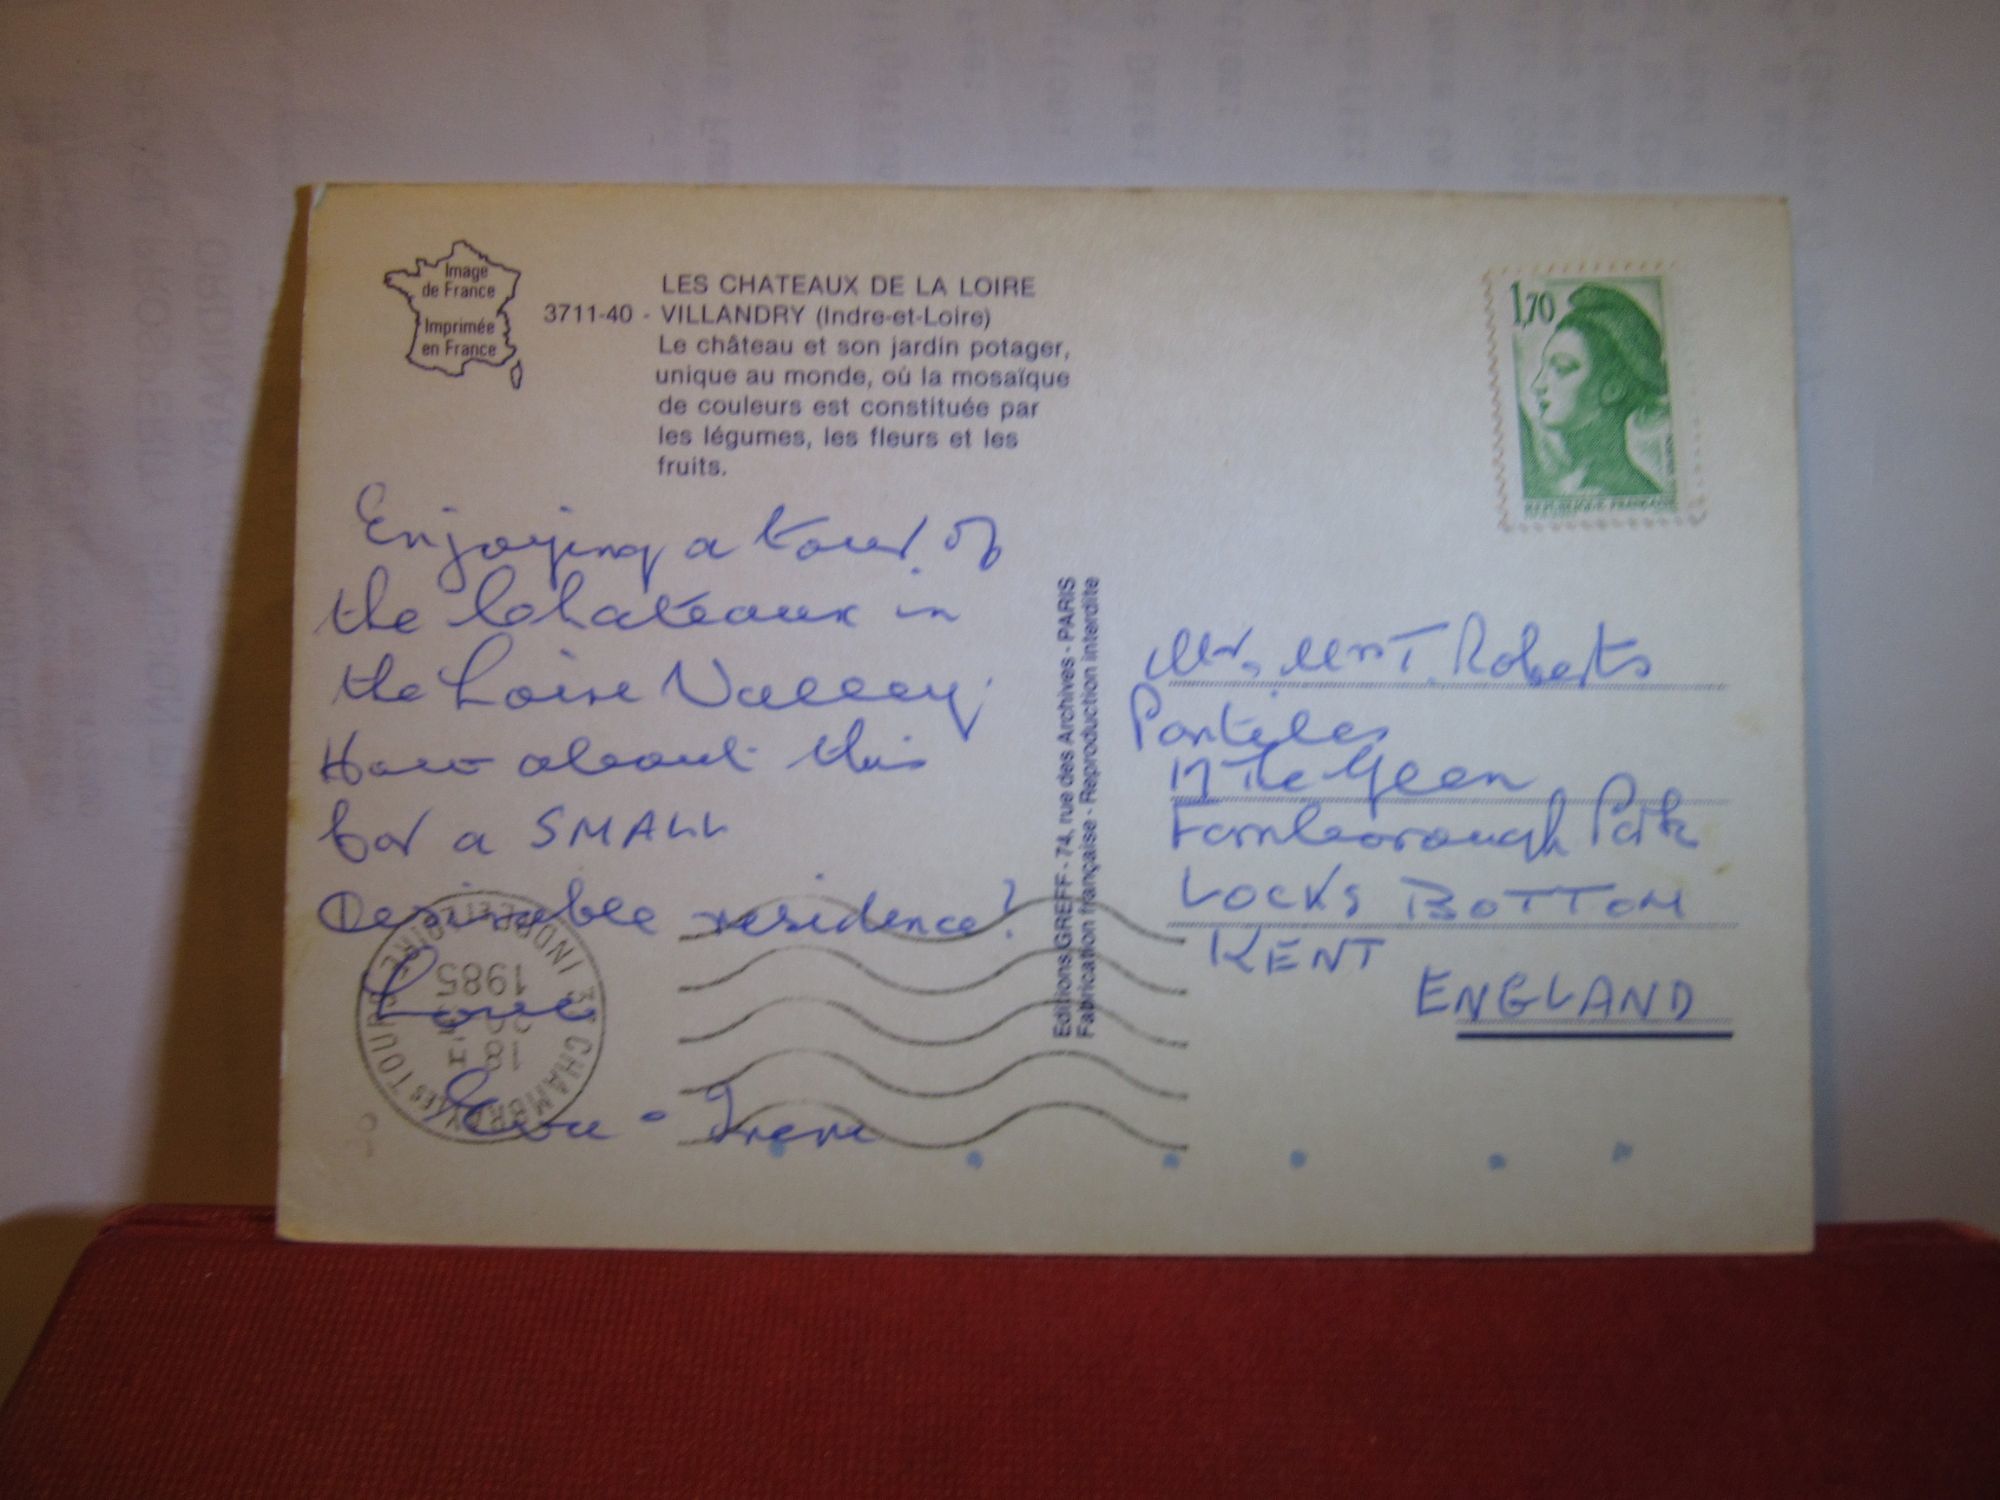 Image
de France
Imprimée
en France
LES CHATEAUX DE LA LOIRE
3711-40 - VILLANDRY (Indre-et-Loire)
Le château et son jardin potager,
unique au monde, où la mosaïque
de couleurs est constituée par
les légumes, les fleurs et les
fruits.
Enjoying a tour of
the Chateaux in
the Loire Valley.
How about this
for a SMALL
Desirable residence?
Love
- Irene
Editions GREFF - 74, rue des Archives - PARIS
Fabrication française - Reproduction interdite
1,70
REPUBLIQUE FRANÇAISE
Mr. Mrs T. Roberts
17 The Green
Farnborough Park
LOCKS BOTTOM
KENT
ENGLAND
37 CHAMBRAY LES TOURS INDRE ET LOIRE
18
1985